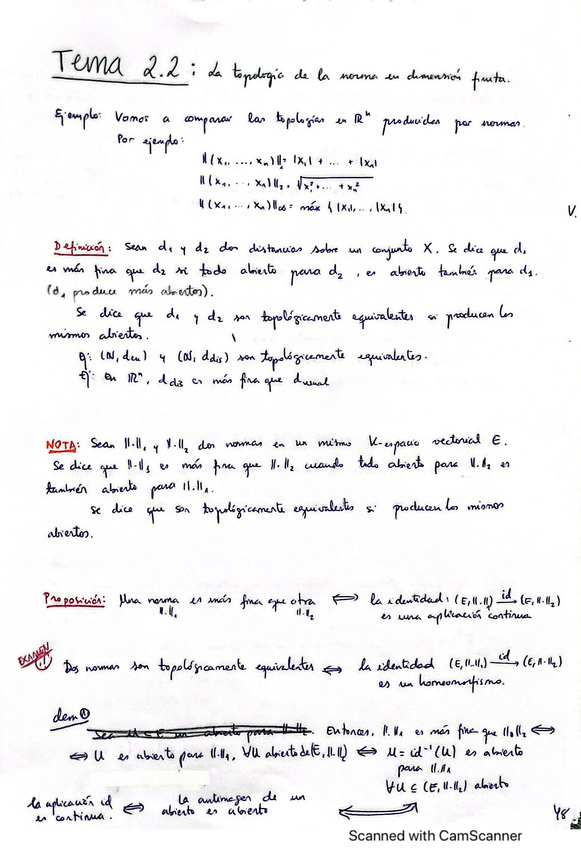 Tema 2.2: La topología de la norma en dimensión finita.
Ejemplo: Vamos a comparar las topologías en ℝⁿ producidas por normas.
Por ejemplo:
||(x₁, ..., xₙ)||₁ = |x₁| + ... + |xₙ|
||(x₁, ..., xₙ)||₂ = √x₁² + ... + xₙ²
||(x₁, ..., xₙ)||∞ = máx {|x₁|, ..., |xₙ|}.
V.
Definición: Sean d₁ y d₂ dos distancias sobre un conjunto X. Se dice que d₁
es más fina que d₂ si todo abierto para d₂, es abierto también para d₁.
(d₁ produce más abiertos).
Se dice que d₁ y d₂ son topológicamente equivalentes si producen los
mismos abiertos.
Ej: (ℕ, deu) y (ℕ, ddis) son topológicamente equivalentes.
Ej: En ℝⁿ, ddis es más fina que dusual
NOTA: Sean ||·||₁ y ||·||₂ dos normas en un mismo K-espacio vectorial E.
Se dice que ||·||₁ es más fina que ||·||₂ cuando todo abierto para ||·||₂ es
también abierto para ||·||₁.
Se dice que son topológicamente equivalentes si producen los mismos
abiertos.
Proposición: Una norma es más fina que otra ⟺ la identidad: (E, ||·||) id→ (E, ||·||₂)
||·||₁ ||·||₂ es una aplicación continua
EXAMEN ①
Dos normas son topológicamente equivalentes ⟺ la identidad (E, ||·||₁) id→ (E, ||·||₂)
es un homeomorfismo.
dem ①
Sea U ⊆ E un abierto para ||·||₂. Entonces, ||·||₁ es más fina que ||·||₂ ⟺
⟺ U es abierto para ||·||₁, ∀U abierto de (E, ||·||₂) ⟺ U = id⁻¹(U) es abierto
para ||·||₁
∀U ⊆ (E, ||·||₂) abierto
la aplicación id ⟺ la antiimagen de un ⟸⟹
es continua. abierto es abierto
48
Scanned with CamScanner